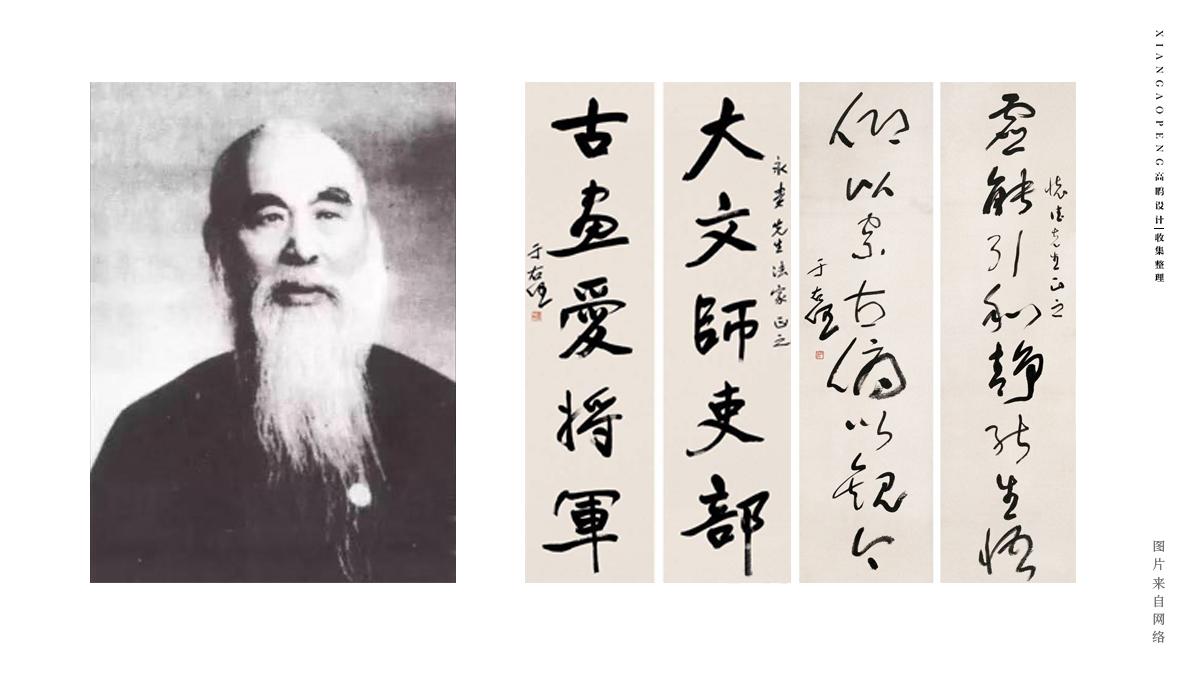 虛能引和靜能生悟
懷德先生正之
仰以察古俯以觀今
于右任
大文師吏部
先生法家正之
古畫愛將軍
于右任
XIANGAOPENG高鹏设计|收集整理
图片来自网络